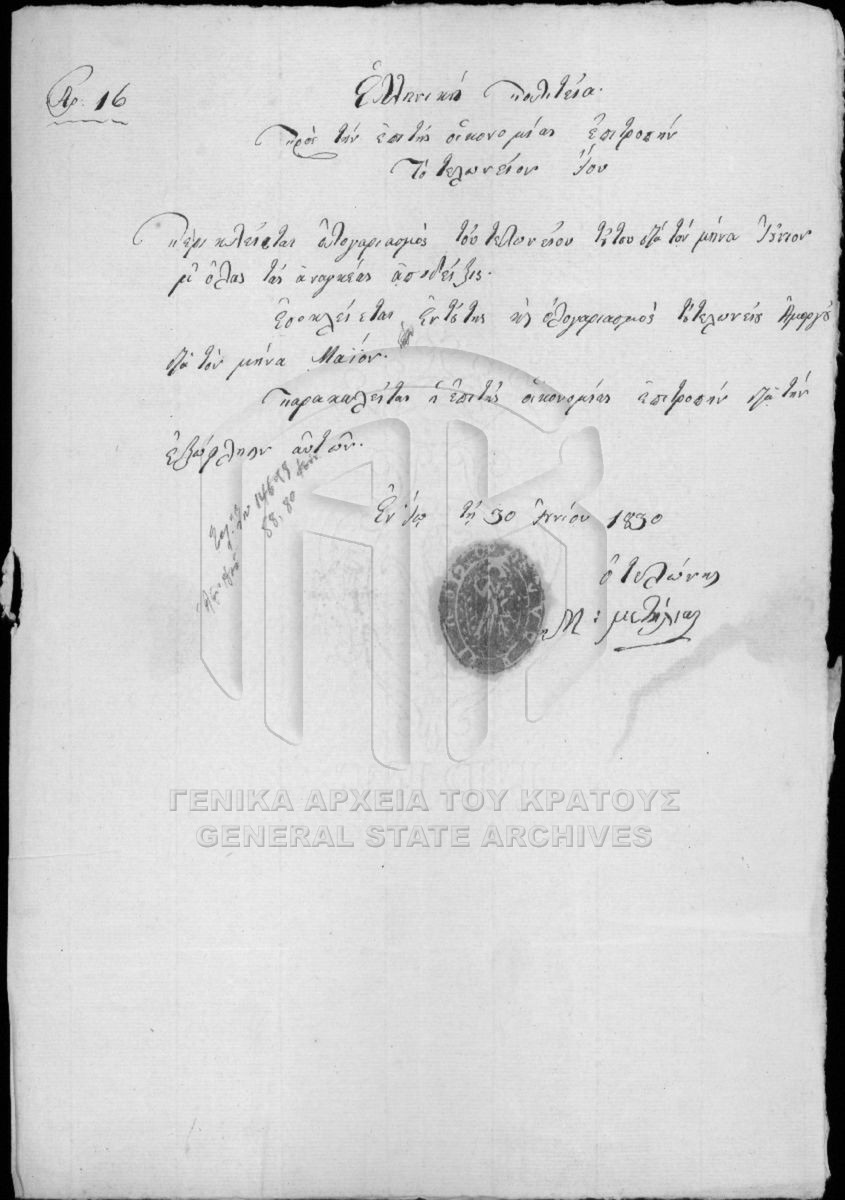 Αρ. 16
Ἑλληνική πολιτεία.
Πρός τήν ἐπί τῆς οἰκονομίας ἐπιτροπήν
Τό τελωνεῖον Ἴου
Περικλείεται ὁ λογαριασμός τοῦ τελωνείου τούτου διά τόν μήνα Ἰούνιον
μ' ὅλας τάς ἀναγκέας ἀποδείξεις.
Ἐσοκλείεται ἐν ταύτης κ ὁ λογαριασμός τοῦ τελωνείου Ἀμοργοῦ
διά τόν μήνα Μαΐον.
Παρακαλεῖται ἡ ἐπί τῆς οἰκονομίας ἐπιτροπήν διά τήν
ἐξώφλησιν αὐτῶν.
Ἐν Ἴῳ τῇ 30 Ἰουνίου 1830
Ὁ τελώνης
Μ: μετζήλιας
14698
58,80
ΓΕΝΙΚΑ ΑΡΧΕΙΑ ΤΟΥ ΚΡΑΤΟΥΣ
GENERAL STATE ARCHIVES